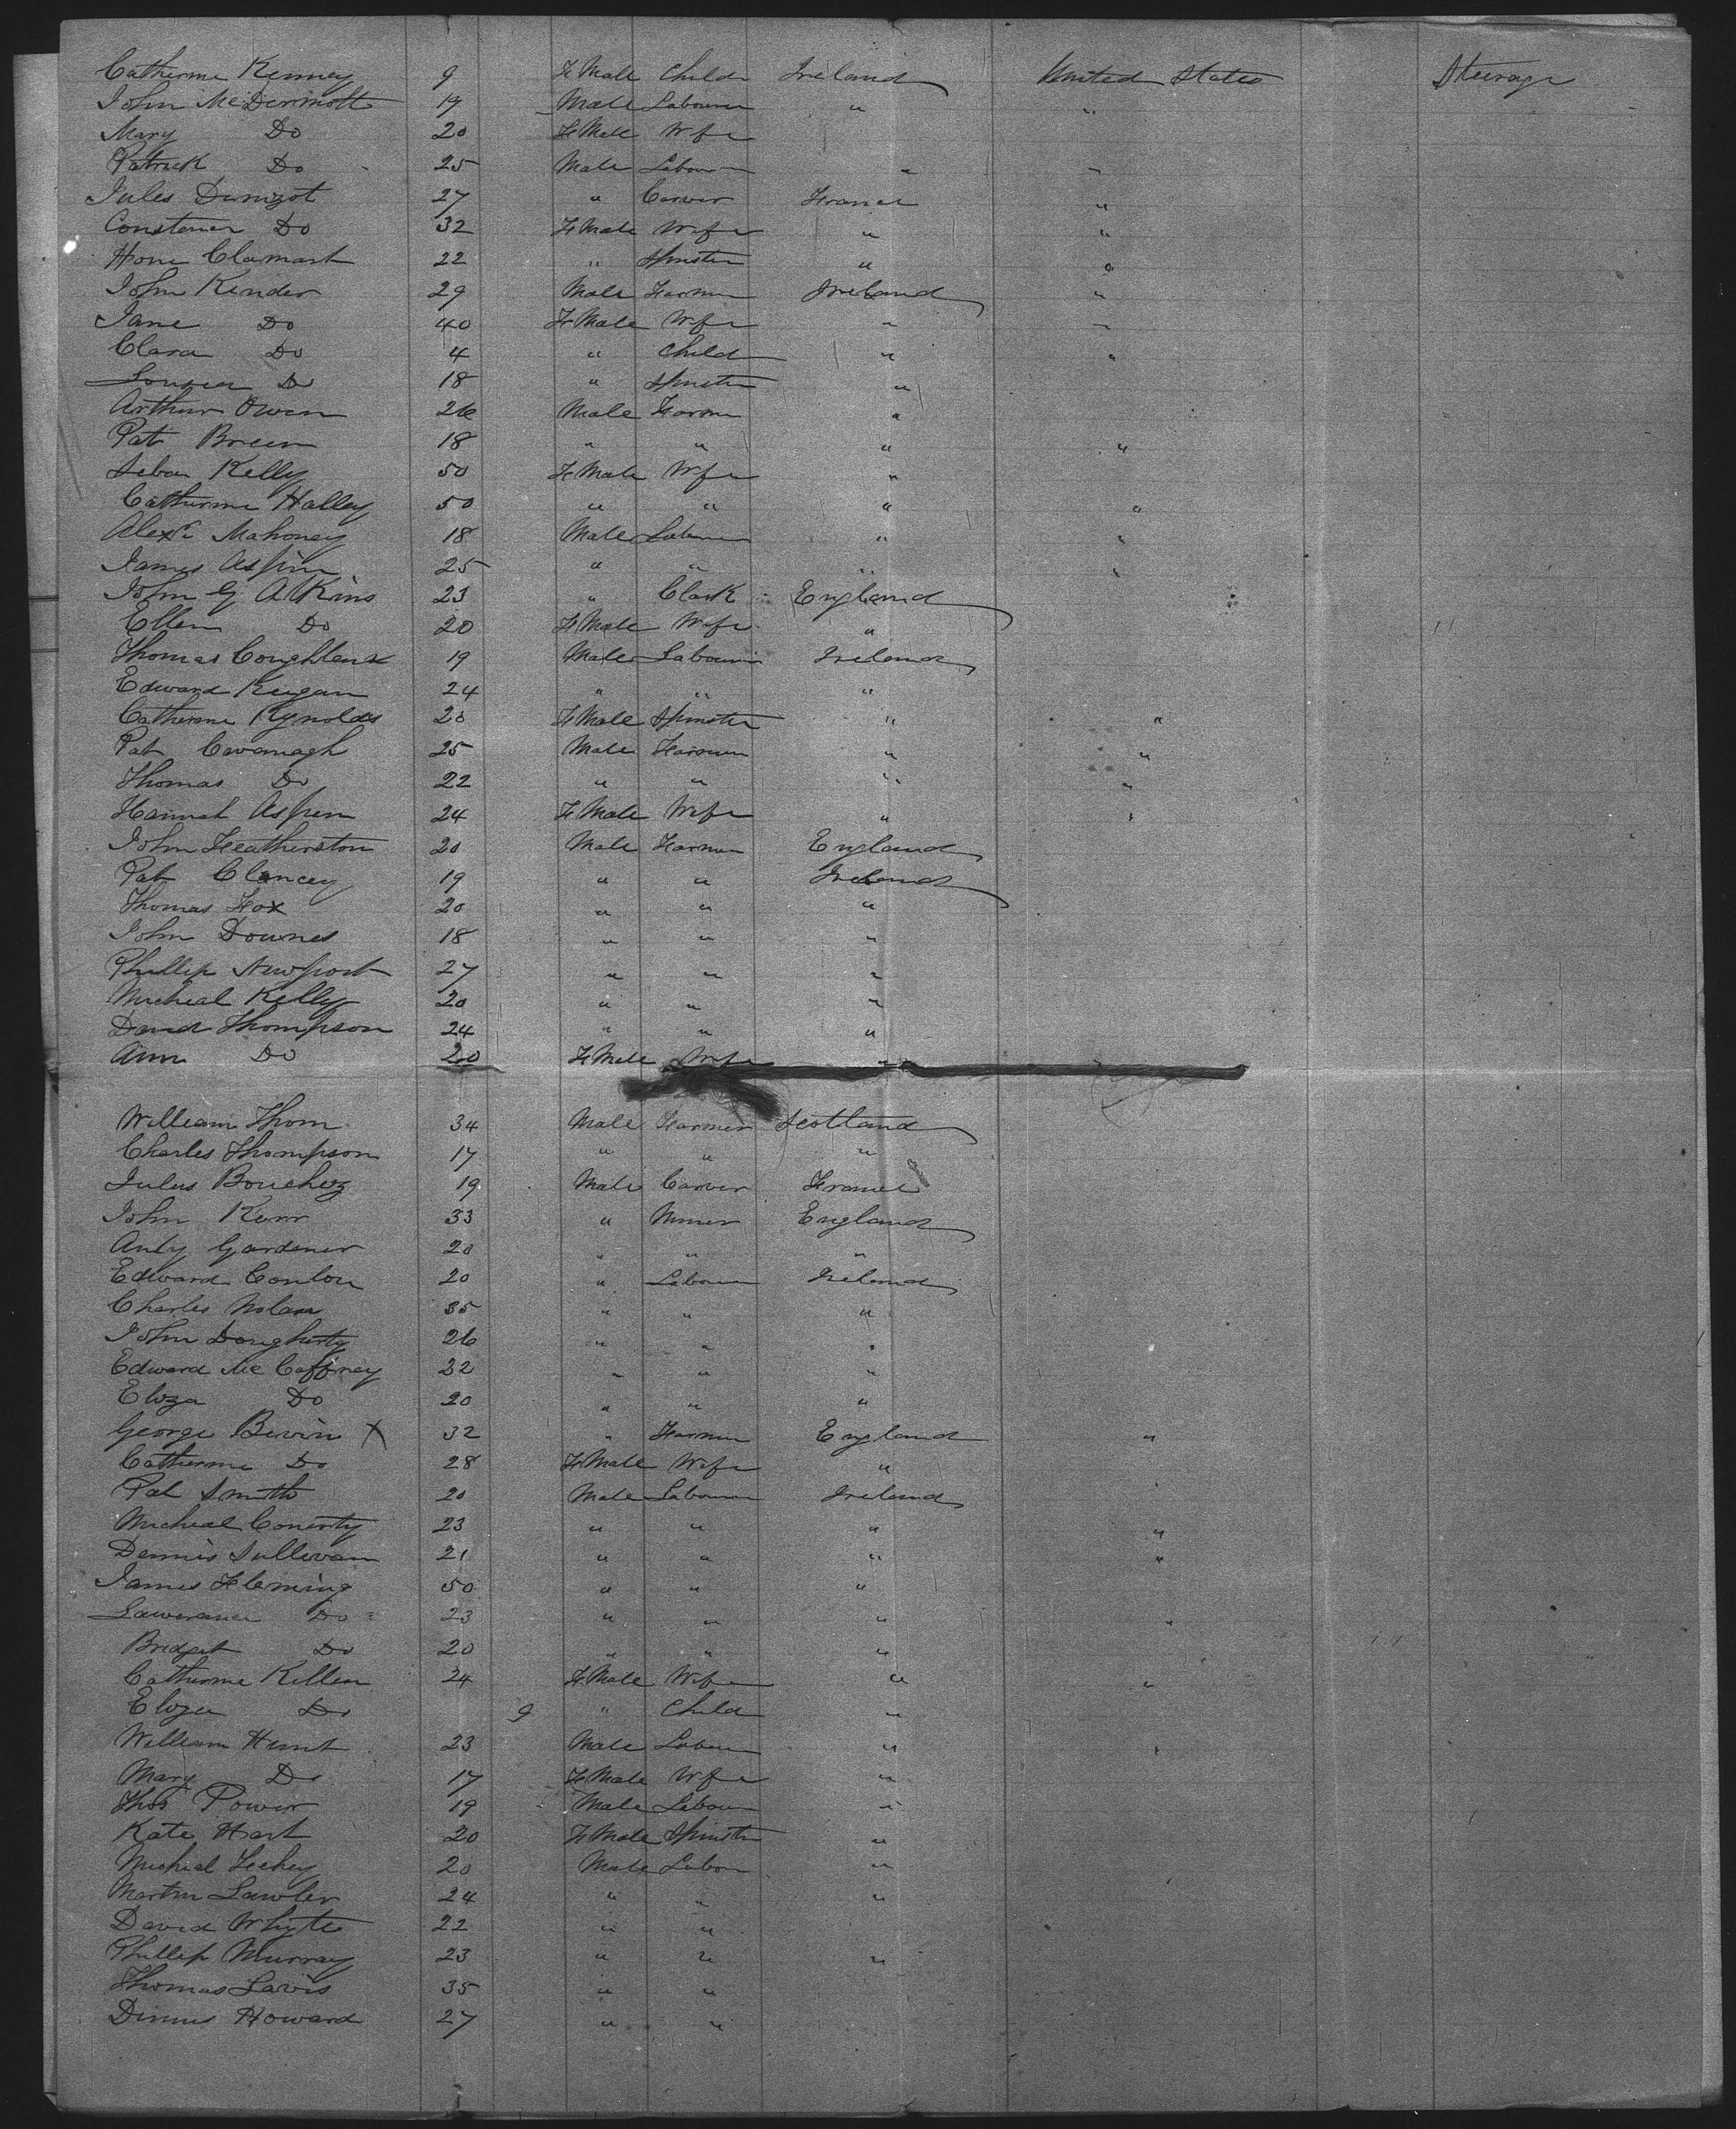 Catherine Kenney 9 FeMale Child Ireland United States Steerage
John McDermott 19 Male Labourer " "
Mary Do 20 FeMale Wife
Patrick Do 25 Male Labourer " "
Jules 27 " Carver France "
Do 32 FeMale Wife " "
Clamart 22 " Spinster " "
John Kinder 29 Male Farmer Ireland "
Jane Do 40 FeMale Wife " "
Clara Do 4 " Child " "
Louisa Do 18 " Spinster "
Arthur Owen 26 Male Farmer "
Pat Breen 18 " " " "
Kelly 50 FeMale Wife "
Catherine Halley 50 " " " "
Alexr Mahoney 18 Male Labourer " "
James Aspin 25 " " " "
John G Atkins 23 " Clark England
Ellen Do 20 FeMale Wife "
Thomas Coughlen 19 Male Labourer Ireland
Edward Keegan 24 " " "
Catherine Rynolds 20 FeMale Spinster " "
Pat Cavanagh 25 Male Farmer " "
Thomas Do 22 " " " "
Hannah Aspin 24 FeMale Wife " "
John Featherston 20 Male Farmer England
Pat Clancey 19 " " Ireland
Thomas Fox 20 " " "
John Downes 18 " " "
Phillip Newport 27 " " "
Micheal Kelly 20 " " "
David Thompson 24 " " "
Ann Do 20 FeMale Wife "
William Thom 34 Male Farmer Scotland
Charles Thompson 17 " " "
Jules Bouchez 19 Male Carver France
John Kerr 33 " Miner England
Andy Gardener 20 " " "
Edward Conlon 20 " Labourer Ireland
Charles Nolan 35 " " "
John Dougherty 26 " " "
Edward McCaffrey 22 " " "
Eliza Do 20 " " "
George Bevin X 32 " Farmer England "
Catherine Do 28 FeMale Wife "
Pat Smith 20 Male Labourer Ireland
Micheal 23 " " " "
Dennis Sullivan 21 " " " "
James Fleming 50 " " "
Lawerance Do 23 " " " "
Bridget Do 20 " " "
Catherine Killen 24 FeMale Wife " "
Eliza Do 9 " Child "
William Hunt 23 Male Labourer " "
Mary Do 17 FeMale Wife "
Thos Power 19 Male Labour "
Kate Hart 20 FeMale Spinster "
Micheal 20 Male Labour "
Martin Lawler 24 " " "
David Whyte 22 " "
Phillip Murray 23 " " "
Thomas Lavis 35 " "
Dinnis Howard 27 " "